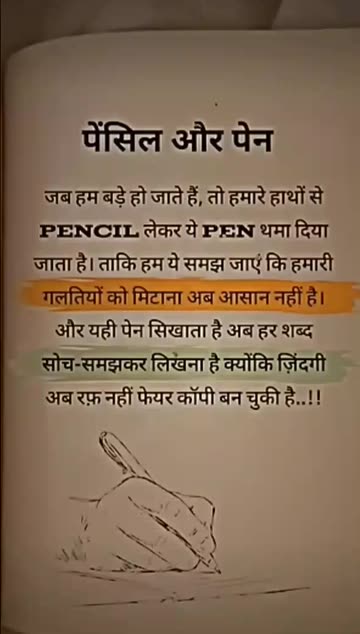 पेंसिल और पेन
जब हम बड़े हो जाते हैं, तो हमारे हाथों से
PENCIL लेकर ये PEN थमा दिया
जाता है। ताकि हम ये समझ जाएं कि हमारी
गलतियों को मिटाना अब आसान नहीं है।
और यही पेन सिखाता है अब हर शब्द
सोच-समझकर लिखना है क्योंकि ज़िंदगी
अब रफ़ नहीं फेयर कॉपी बन चुकी है..!!